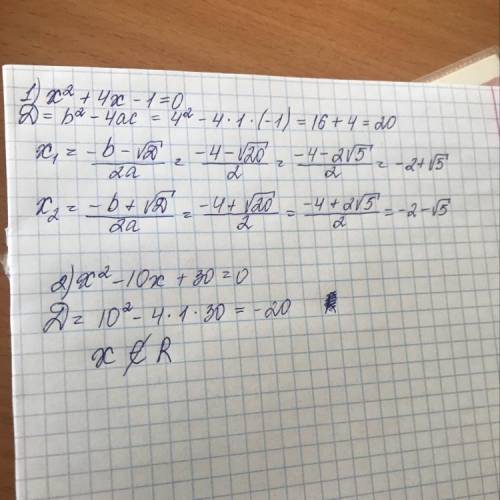 1) x² + 4x - 1 = 0
D = b² - 4ac = 4² - 4 · 1 · (-1) = 16 + 4 = 20
x₁ = (-b - √D)/(2a) = (-4 - √20)/2 = (-4 - 2√5)/2 = -2 + √5
x₂ = (-b + √D)/(2a) = (-4 + √20)/2 = (-4 + 2√5)/2 = -2 - √5
2) x² - 10x + 30 = 0
D = 10² - 4 · 1 · 30 = -20
x ∉ R